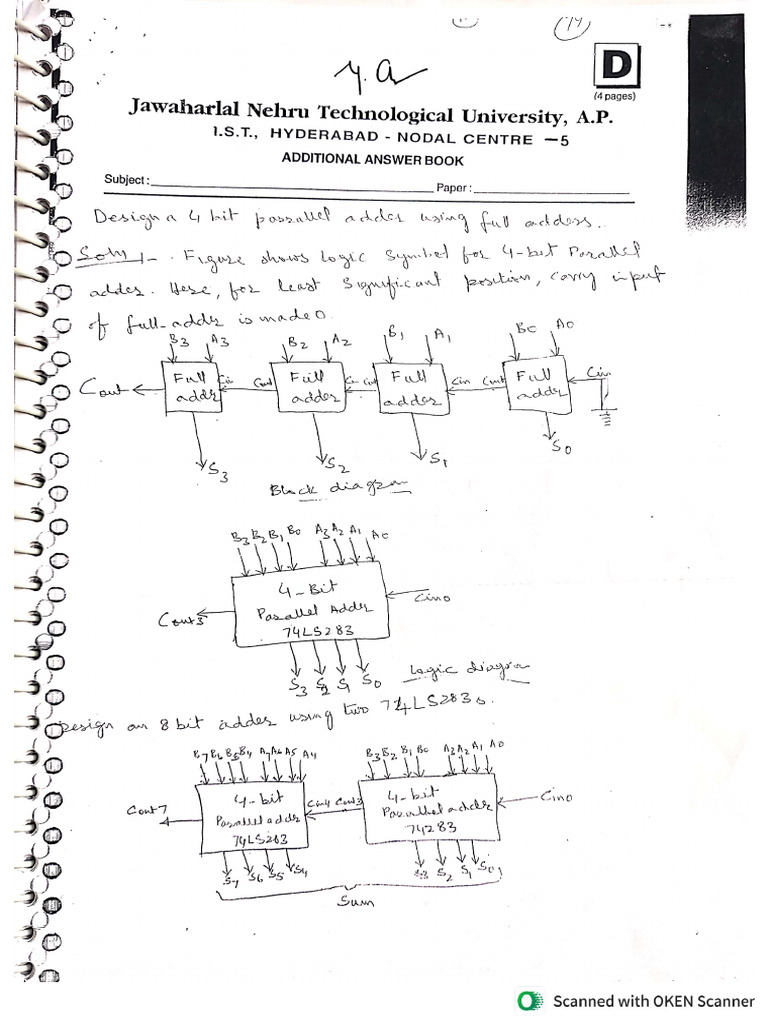 14
D
(4 pages)
Jawaharlal Nehru Technological University, A.P.
I.S.T., HYDERABAD - NODAL CENTRE - 5
ADDITIONAL ANSWER BOOK
Subject : Paper :
Design a 4 bit parallel adder using full adders.
Soln :- Figure shows Logic Symbol for 4-bit Parallel
adder. Here, for Least Significant position, carry input
of full-addr is made 0.
B3 A3 B2 A2 B1 A1 B0 A0
Cout Full adder Cin Cout Full adder Cin Cout Full adder Cin Cout Full addr Cin
S3 S2 S1 S0
Block diagram
B3 B2 B1 B0 A3 A2 A1 A0
4-Bit
Parallel Adder
74LS283
Cout3 Cin0
S3 S2 S1 S0 Logic diagram
Design an 8 bit adder using two 74LS283s.
B7 B6 B5 B4 A7 A6 A5 A4 B3 B2 B1 B0 A3 A2 A1 A0
Cout7 4-bit Cin4 Cout3 4-bit Cin0
Parallel addr Parallel addr
74LS283 74283
S7 S6 S5 S4 S3 S2 S1 S0
Sum
Scanned with OKEN Scanner